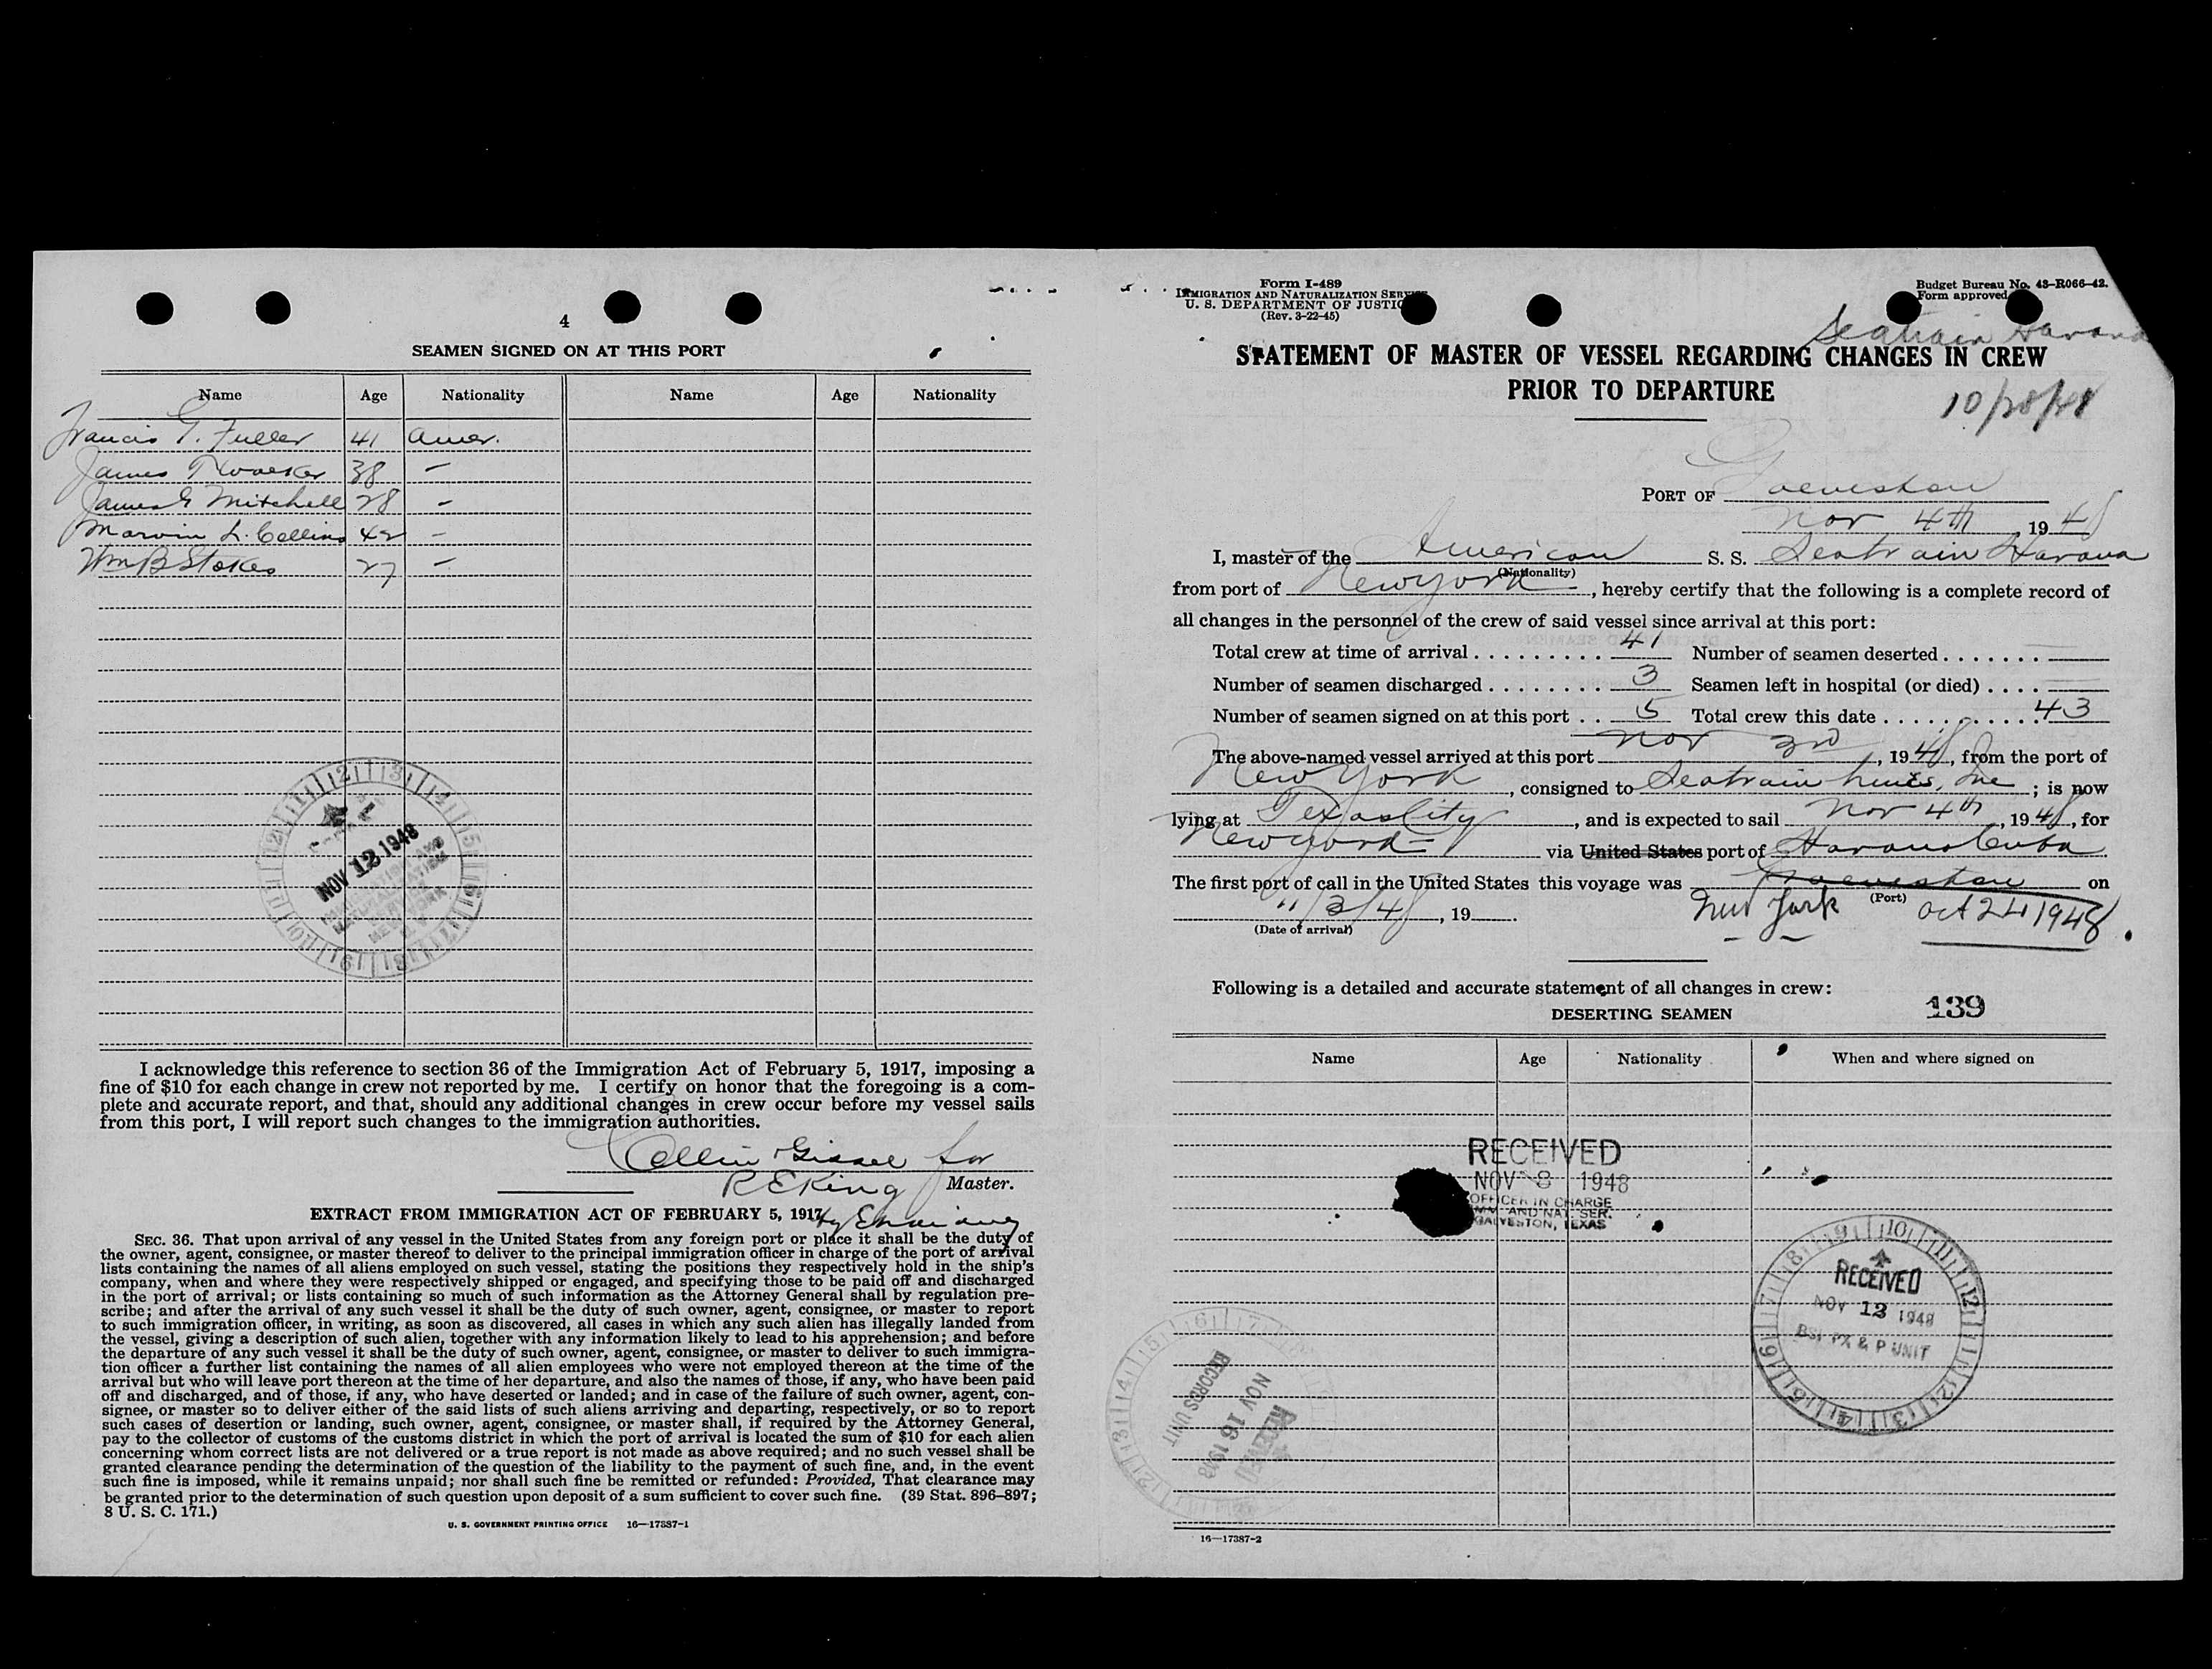 4
SEAMEN SIGNED ON AT THIS PORT
Name Age Nationality Name Age Nationality
Francis T. Fuller 41 Amer.
James T Walker 38 -
James G Mitchell 28 -
Marvin L. Collins 42 -
Wm B Stokes 27 -
NOV 12 1948
I acknowledge this reference to section 36 of the Immigration Act of February 5, 1917, imposing a
fine of $10 for each change in crew not reported by me. I certify on honor that the foregoing is a com-
plete and accurate report, and that, should any additional changes in crew occur before my vessel sails
from this port, I will report such changes to the immigration authorities.
for
R E King Master.
EXTRACT FROM IMMIGRATION ACT OF FEBRUARY 5, 1917
SEC. 36. That upon arrival of any vessel in the United States from any foreign port or place it shall be the duty of
the owner, agent, consignee, or master thereof to deliver to the principal immigration officer in charge of the port of arrival
lists containing the names of all aliens employed on such vessel, stating the positions they respectively hold in the ship's
company, when and where they were respectively shipped or engaged, and specifying those to be paid off and discharged
in the port of arrival; or lists containing so much of such information as the Attorney General shall by regulation pre-
scribe; and after the arrival of any such vessel it shall be the duty of such owner, agent, consignee, or master to report
to such immigration officer, in writing, as soon as discovered, all cases in which any such alien has illegally landed from
the vessel, giving a description of such alien, together with any information likely to lead to his apprehension; and before
the departure of any such vessel it shall be the duty of such owner, agent, consignee, or master to deliver to such immigra-
tion officer a further list containing the names of all alien employees who were not employed thereon at the time of the
arrival but who will leave port thereon at the time of her departure, and also the names of those, if any, who have been paid
off and discharged, and of those, if any, who have deserted or landed; and in case of the failure of such owner, agent, con-
signee, or master so to deliver either of the said lists of such aliens arriving and departing, respectively, or so to report
such cases of desertion or landing, such owner, agent, consignee, or master shall, if required by the Attorney General,
pay to the collector of customs of the customs district in which the port of arrival is located the sum of $10 for each alien
concerning whom correct lists are not delivered or a true report is not made as above required; and no such vessel shall be
granted clearance pending the determination of the question of the liability to the payment of such fine, and, in the event
such fine is imposed, while it remains unpaid; nor shall such fine be remitted or refunded: Provided, That clearance may
be granted prior to the determination of such question upon deposit of a sum sufficient to cover such fine. (39 Stat. 896–897;
8 U. S. C. 171.)
U. S. GOVERNMENT PRINTING OFFICE 16—17387-1
Form I-489
IMMIGRATION AND NATURALIZATION SERVICE
U. S. DEPARTMENT OF JUSTICE
(Rev. 3-22-45)
Budget Bureau No. 43-R066-42.
Form approved
Seatrain Havana
STATEMENT OF MASTER OF VESSEL REGARDING CHANGES IN CREW
PRIOR TO DEPARTURE
10/28/48
PORT OF Galveston
Nov 4th, 1948
I, master of the American S. S. Seatrain Havana
(Nationality)
from port of New York, hereby certify that the following is a complete record of
all changes in the personnel of the crew of said vessel since arrival at this port:
Total crew at time of arrival 41 Number of seamen deserted
Number of seamen discharged 3 Seamen left in hospital (or died)
Number of seamen signed on at this port 5 Total crew this date 43
The above-named vessel arrived at this port Nov 3rd, 1948, from the port of
New York, consigned to Seatrain Lines, Inc; is now
lying at Texas City, and is expected to sail Nov 4th, 1948, for
New York via United States port of Havana Cuba
The first port of call in the United States this voyage was Galveston on
11/3/48, 19 New York (Port) Oct 24 1948
(Date of arrival)
Following is a detailed and accurate statement of all changes in crew:
DESERTING SEAMEN 139
Name Age Nationality When and where signed on
RECEIVED
NOV 8 1948
OFFICER IN CHARGE
IMM. AND NAT. SER.
GALVESTON, TEXAS
RECEIVED
NOV 12 1948
BSI PX & P UNIT
RECEIVED
NOV 16 1948
RECORDS UNIT
16—17387-2